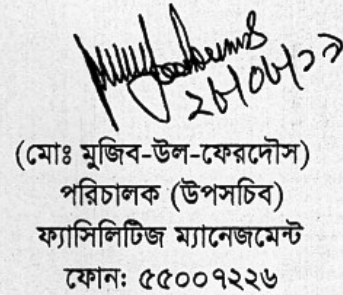 (মোঃ মুজিব-উল-ফেরদৌস)
পরিচালক (উপসচিব)
ফ্যাসিলিটিজ ম্যানেজমেন্ট
ফোন: ৫৫০০৭২২৬